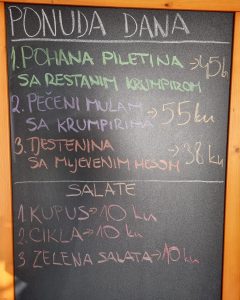 PONUDA DANA
1. POHANA PILETINA → 45 k
SA RESTANIM KRUMPIROM
2. PEČENI
SA KRUMPIRIMA → 55 ku
3. TJESTENINA
SA MLJEVENIM MESOM → 38 ku
SALATE
1. KUPUS → 10 ku
2. CIKLA → 10 ku
3. ZELENA SALATA → 10 ku